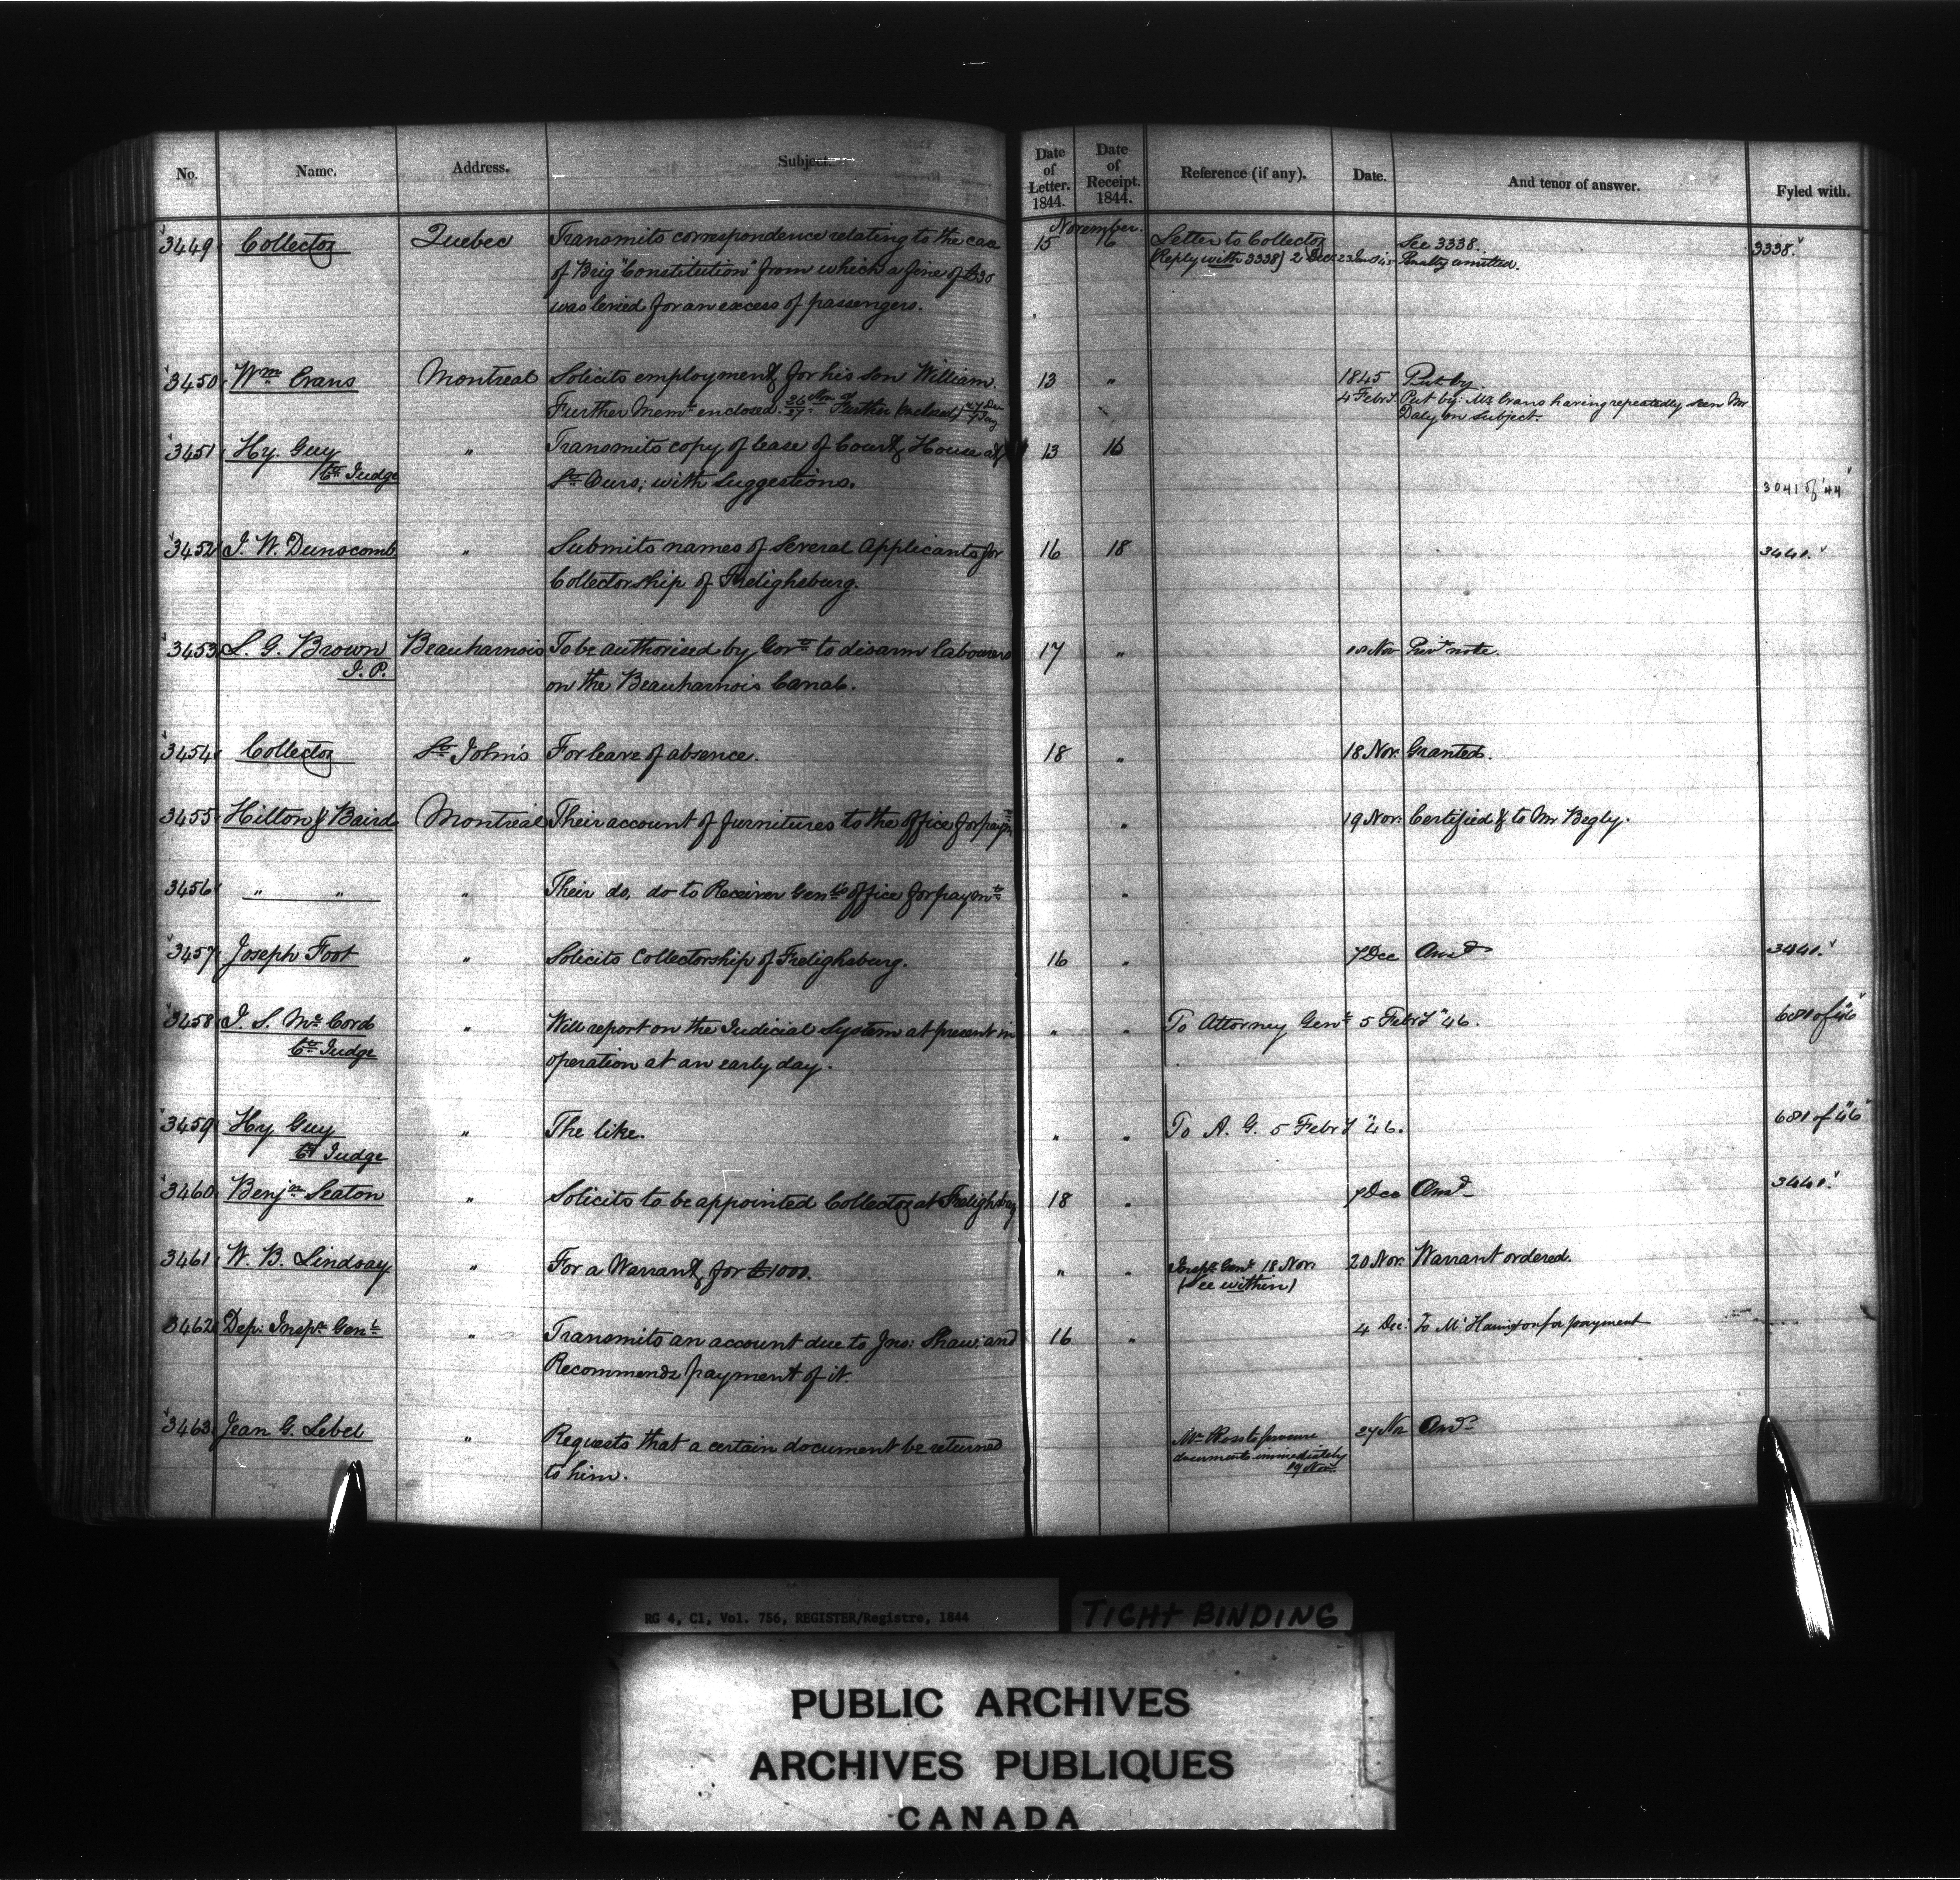 No. Name. Address. Subject. Date of Letter. 1844. Date of Receipt. 1844. Reference (if any). Date. And tenor of answer. Fyled with.
November.
3449 Collector Quebec Transmits correspondence relating to the case 15 16 Letter to Collector See 3338. 3338.
of Brig "Constitution" from which a fine of £30 (Reply with 3338) 2 Dec Penalty remitted.
was levied for an excess of passengers.
3450 Wm Evans Montreal Solicits employment for his son William. 13 " 1845 Put by.
Further Memo enclosed. Further enclosed 4 Feby. Put by: Mr Evans having repeatedly seen Mr
Daly on subject.
3451 Hy. Guy " Transmits copy of lease of Court House at 13 16
Ct. Judge St. Ours; with Suggestions. 3041 of '44
3452 J. W. Dunscomb " Submits names of several Applicants for 16 18 3440.
Collectorship of Frelighsburg.
3453 L. G. Brown Beauharnois To be authorised by Govt to disarm labourers 17 " 18 Nov Privt note.
J. P. on the Beauharnois Canal.
3454 Collector St. John's For leave of absence. 18 " 18 Nov: Granted.
3455 Hilton & Baird Montreal Their account of furnitures to the office for paymt " 19 Nov: Certified & to Mr Begly.
3456 " " " Their do, do to Receiver Genl's office for paymt "
3457 Joseph Foot " Solicits Collectorship of Frelighsburg. 16 " 7 Dec Ansd 3440.
3458 J. S. McCord " Will report on the Judicial System at present in " " To Attorney Genl 5 Feby "46. 681 of "46"
Ct. Judge operation at an early day.
3459 Hy Guy " The like. " " To A. G. 5 Feby "46. 681 of "46"
Ct. Judge
3460 Benjn Seaton " Solicits to be appointed Collector at Frelighsburg 18 " 7 Dec Ansd 3440.
3461 W. B. Lindsay " For a Warrant for £1000. " " Inspr. Genl 18 Nov: 20 Nov: Warrant ordered.
(See within)
3462 Dep: Inspr. Genl. " Transmits an account due to Jno: Shaw, and 16 " 4 Dec: To Mr Harington for payment
Recommends payment of it.
3463 Jean G. Lebel " Requests that a certain document be returned Mr Ross to procure 27 Nov Ansd
to him. documents immediately
19 Nov.
RG 4, C1, Vol. 756, REGISTER/Registre, 1844
TIGHT BINDING
PUBLIC ARCHIVES
ARCHIVES PUBLIQUES
CANADA